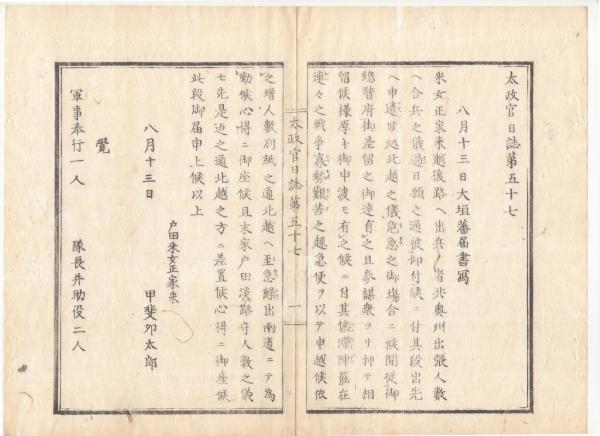 太政官日誌第五十七
八月十三日大垣藩届書寫
采女正家来越後路ヘ出兵ノ者共奥州出張人数
ヘ合兵之儀過日願之通被仰付候ニ付其段出先
ヘ申遣候処北越之儀危急之御場合ニ候間従御
總督府御差留之御達有之且参謀衆ヨリ押テ相
留候様厚キ御申渡モ有之候ニ付其儘滞陣罷在
連々之戦争寡勢艱苦之趣急便ヲ以テ申越候依
太政官日誌第五十七 一
之増人数別紙之通北越ヘ至急繰出両道ニテ為
勤候心得ニ御座候且末家戸田淡路守人数之儀
モ先是迄之通北越之方ニ差置候心得ニ御座候
此段御届申上候以上
戸田采女正家来
八月十三日 甲斐卯太郎
覺
軍事奉行一人 隊長并助役二人